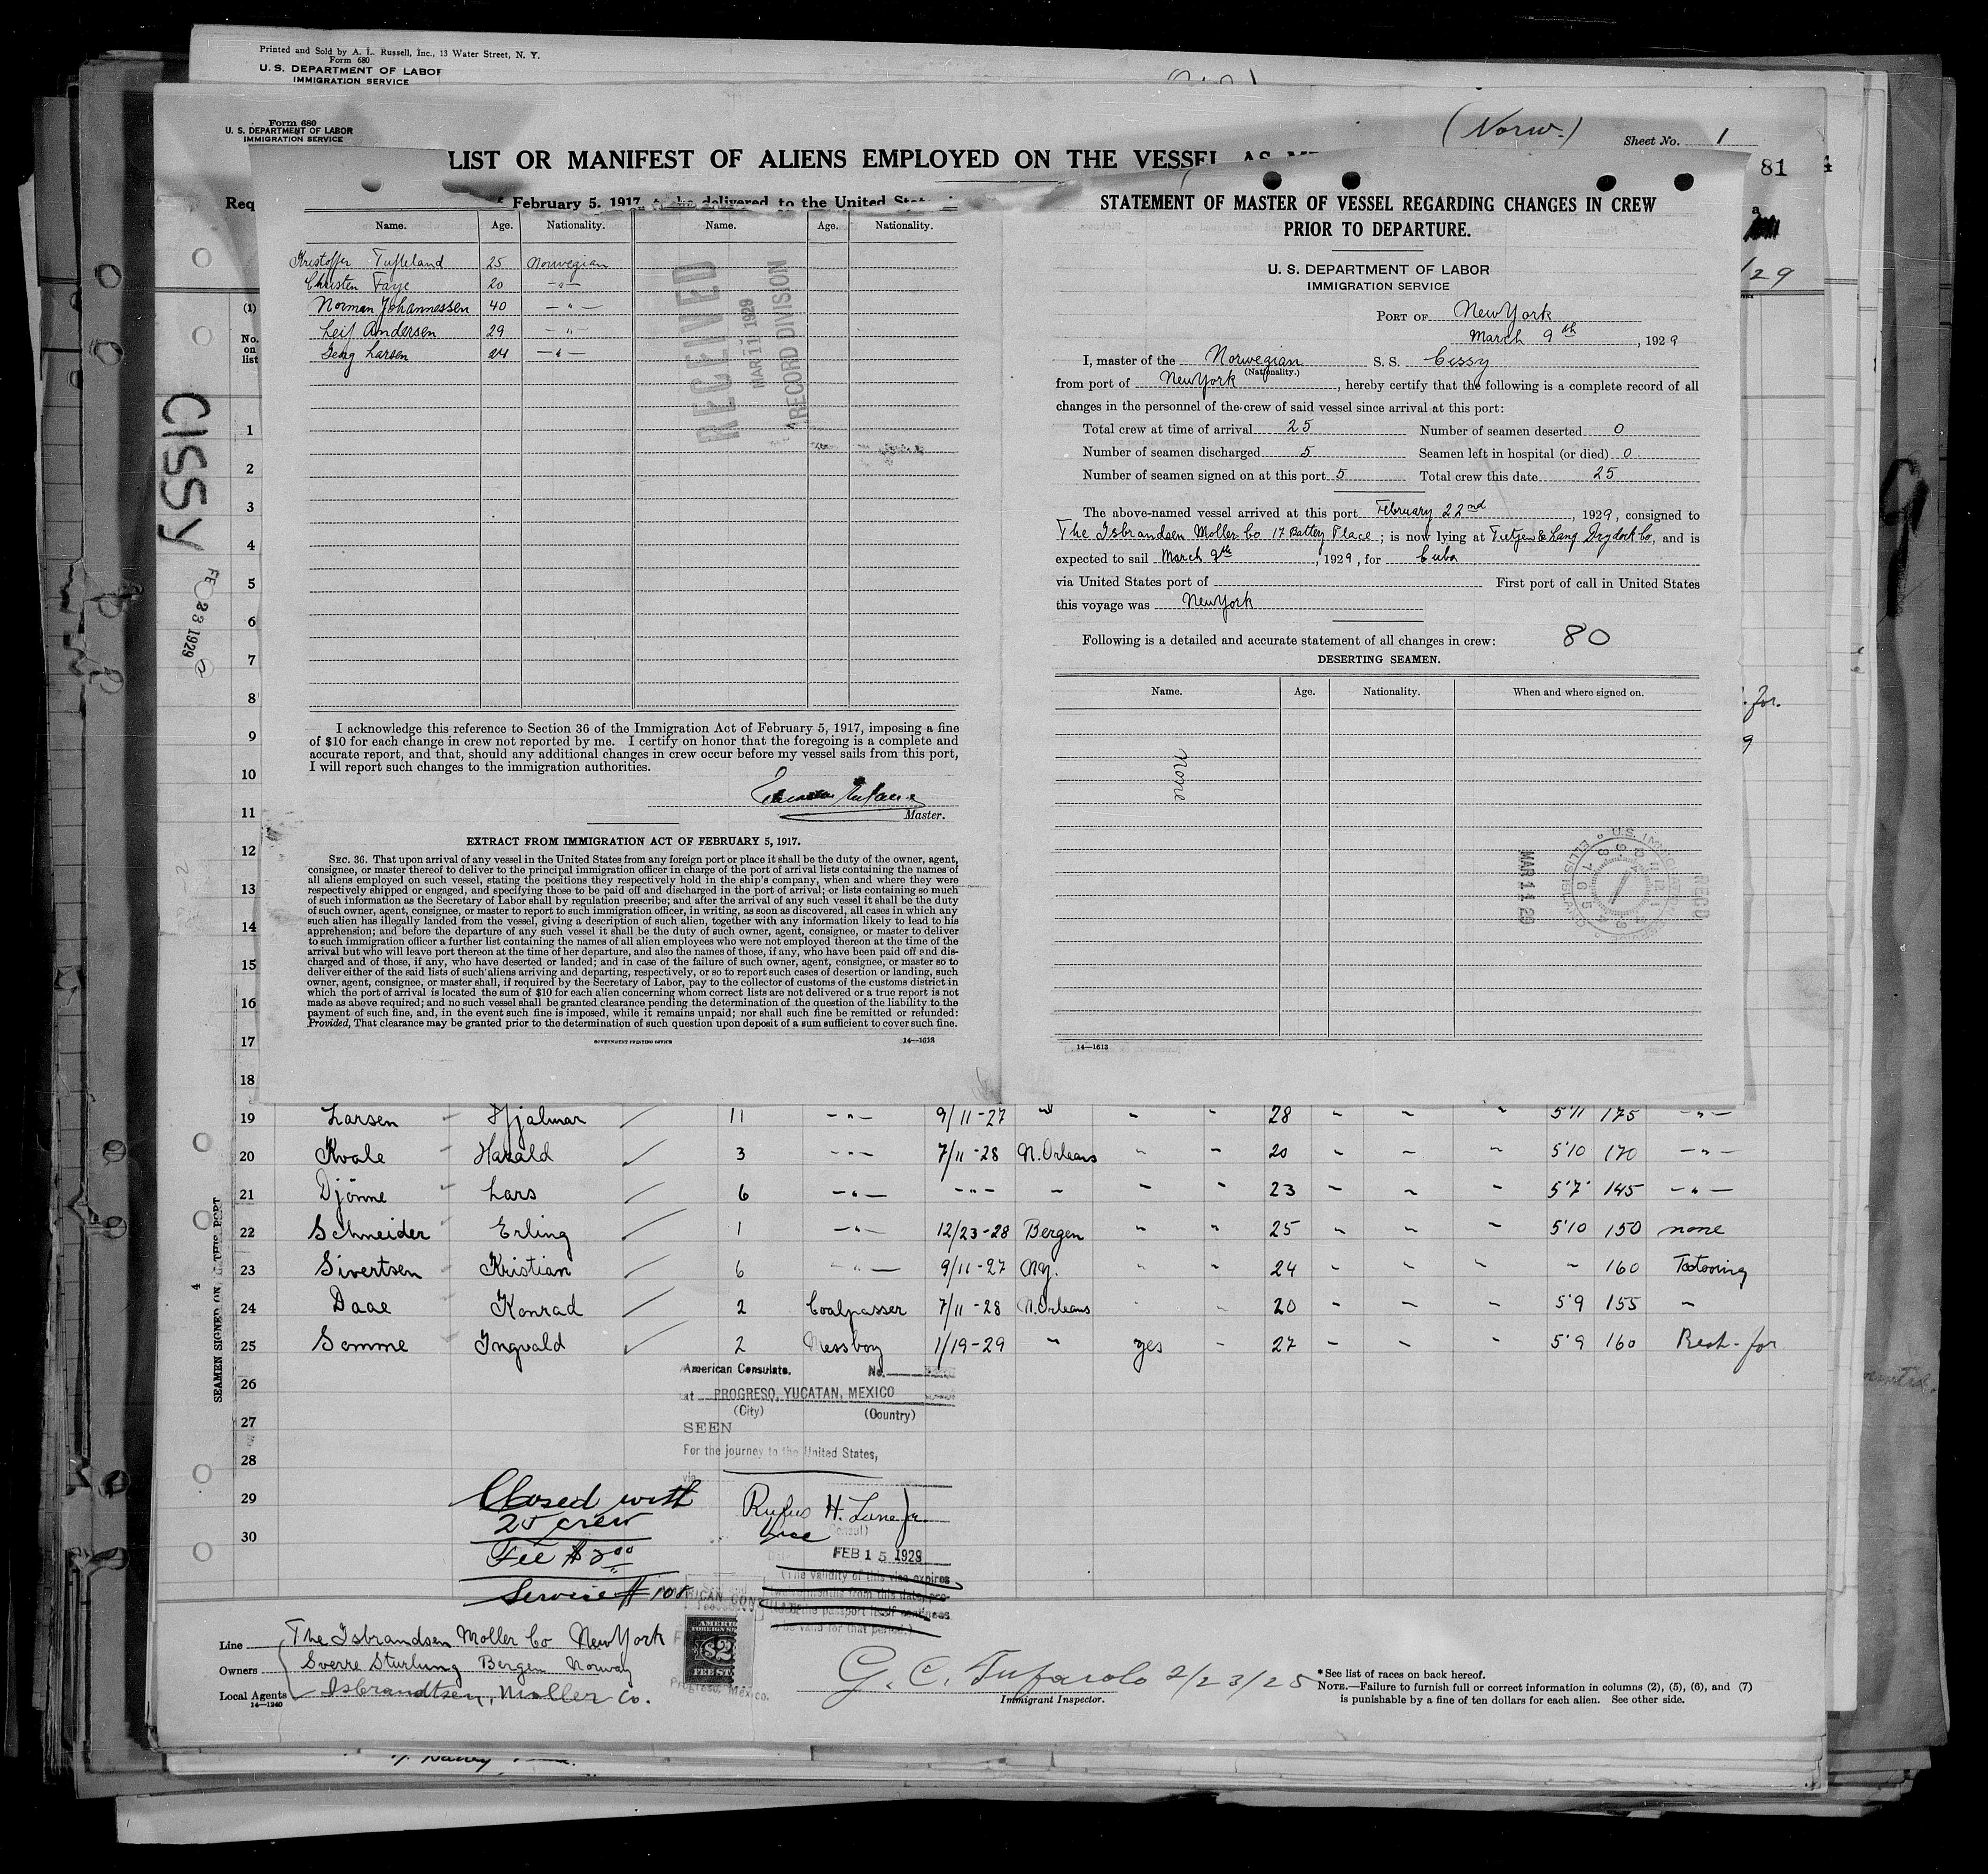 Printed and Sold by A. L. Russell, Inc., 13 Water Street, N. Y.
Form 680
U. S. DEPARTMENT OF LABOR
IMMIGRATION SERVICE
Form 680
U. S. DEPARTMENT OF LABOR
IMMIGRATION SERVICE
(Norw.)
Sheet No. 1
LIST OR MANIFEST OF ALIENS EMPLOYED ON THE VESSEL AS
81
4
Req
February 5, 1917, to be delivered to the United
(1)
No. on list
CISSY
Name. Age. Nationality. Name. Age. Nationality.
Kristoffer Tufteland 25 Norwegian
Christen Faye 20 -"-
Norman Johannessen 40 -"-
Leif Andersen 29 -"-
Georg Larsen 24 -"-
RECEIVED
MAR 11 1929
RECORD DIVISION
I acknowledge this reference to Section 36 of the Immigration Act of February 5, 1917, imposing a fine
of $10 for each change in crew not reported by me. I certify on honor that the foregoing is a complete and
accurate report, and that, should any additional changes in crew occur before my vessel sails from this port,
I will report such changes to the immigration authorities.
Master.
EXTRACT FROM IMMIGRATION ACT OF FEBRUARY 5, 1917.
SEC. 36. That upon arrival of any vessel in the United States from any foreign port or place it shall be the duty of the owner, agent,
consignee, or master thereof to deliver to the principal immigration officer in charge of the port of arrival lists containing the names of
all aliens employed on such vessel, stating the positions they respectively hold in the ship's company, when and where they were
respectively shipped or engaged, and specifying those to be paid off and discharged in the port of arrival; or lists containing so much
of such information as the Secretary of Labor shall by regulation prescribe; and after the arrival of any such vessel it shall be the duty
of such owner, agent, consignee, or master to report to such immigration officer, in writing, as soon as discovered, all cases in which any
such alien has illegally landed from the vessel, giving a description of such alien, together with any information likely to lead to his
apprehension; and before the departure of any such vessel it shall be the duty of such owner, agent, consignee, or master to deliver
to such immigration officer a further list containing the names of all alien employees who were not employed thereon at the time of the
arrival but who will leave port thereon at the time of her departure, and also the names of those, if any, who have been paid off and dis-
charged and of those, if any, who have deserted or landed; and in case of the failure of such owner, agent, consignee, or master so to
deliver either of the said lists of such aliens arriving and departing, respectively, or so to report such cases of desertion or landing, such
owner, agent, consignee, or master shall, if required by the Secretary of Labor, pay to the collector of customs of the customs district in
which the port of arrival is located the sum of $10 for each alien concerning whom correct lists are not delivered or a true report is not
made as above required; and no such vessel shall be granted clearance pending the determination of the question of the liability to the
payment of such fine, and, in the event such fine is imposed, while it remains unpaid; nor shall such fine be remitted or refunded:
Provided, That clearance may be granted prior to the determination of such question upon deposit of a sum sufficient to cover such fine.
GOVERNMENT PRINTING OFFICE 14—1613
STATEMENT OF MASTER OF VESSEL REGARDING CHANGES IN CREW
PRIOR TO DEPARTURE.
U. S. DEPARTMENT OF LABOR
IMMIGRATION SERVICE
PORT OF New York
March 9th, 1929
I, master of the Norwegian S. S. Cissy
(Nationality.)
from port of New York, hereby certify that the following is a complete record of all
changes in the personnel of the crew of said vessel since arrival at this port:
Total crew at time of arrival 25 Number of seamen deserted 0
Number of seamen discharged 5 Seamen left in hospital (or died) 0
Number of seamen signed on at this port 5 Total crew this date 25
The above-named vessel arrived at this port February 22nd, 1929, consigned to
The Isbrandsen Moller Co 17 Battery Place; is now lying at Tietjen & Lang Drydock Co, and is
expected to sail March 9th, 1929, for Cuba
via United States port of First port of call in United States
this voyage was New York
Following is a detailed and accurate statement of all changes in crew: 80
DESERTING SEAMEN.
Name. Age. Nationality. When and where signed on.
None
MAR 11 29
REC'D
U.S. IMMIGRATION SERVICE
ELLIS ISLAND
14—1613
1
2
3
4
5
6
7
8
9
10
11
12
13
14
15
16
17
18
FEB 23 1929
SEAMEN SIGNED ON THIS PORT
19 Larsen Hjalmar 11 -"- 9/11-27 " " " 28 " " " 5'11 175 -"-
20 Kvale Harald 3 -"- 7/11-28 N.Orleans " " 20 " " " 5'10 170 -"-
21 Djönne Lars 6 -"- -"- " " " 23 " " " 5'7" 145 -"-
22 Schneider Erling 1 -"- 12/23-28 Bergen " " 25 " " " 5'10 150 none
23 Sivertsen Kristian 6 -"- 9/11-27 NY. " " 24 " " " " 160 Tatooing
24 Daae Konrad 2 Coalpasser 7/11-28 N.Orleans " " 20 " " " 5'9 155 "
25 Somme Ingvald 2 Messboy 1/19-29 " yes " 27 " " " 5'9 160 Besh-for
26
27
28
29
30
American Consulate. No.
at PROGRESO, YUCATAN, MEXICO
(City) (Country)
SEEN
For the journey to the United States,
via
Rufus H. Lane Jr.
Vice Consul)
FEB 15 1929
(The validity of this visa expires
be valid for that period.)
Closed with
25 crew
Fee $2.00
Service # 108
Line The Isbrandsen Moller Co New York
Owners Sverre Sturlung Bergen Norway
Local Agents Isbrandtsen, Moller Co.
14—1240
FEE ST
Progreso, Mexico.
G. C. Tufarolo 2/23/25
Immigrant Inspector.
*See list of races on back hereof.
NOTE.—Failure to furnish full or correct information in columns (2), (5), (6), and (7)
is punishable by a fine of ten dollars for each alien. See other side.